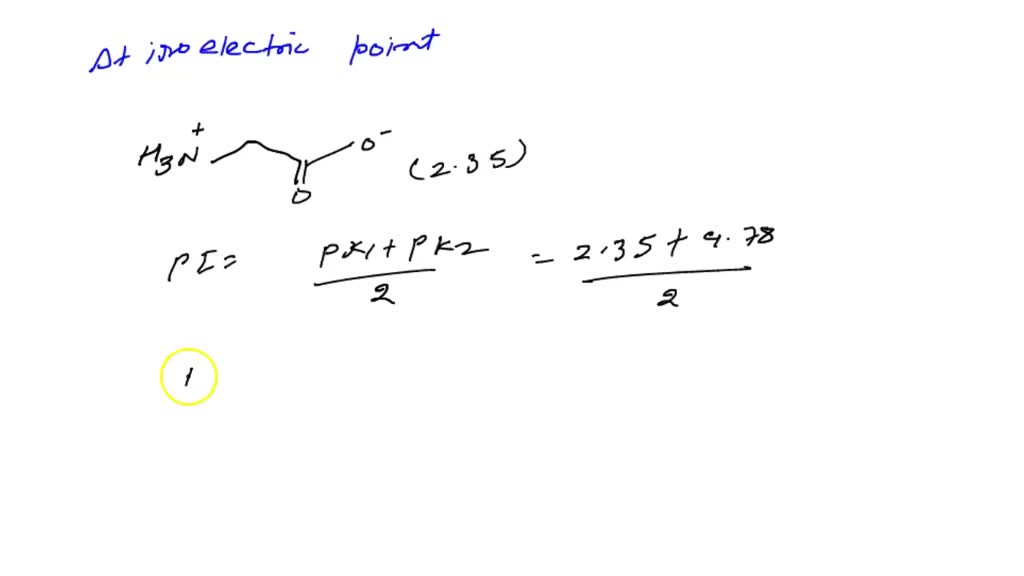 At isoelectric point
H3N+ O- (2.35)
O
PI = pK1 + pK2 / 2 = 2.35 + 9.78 / 2
1